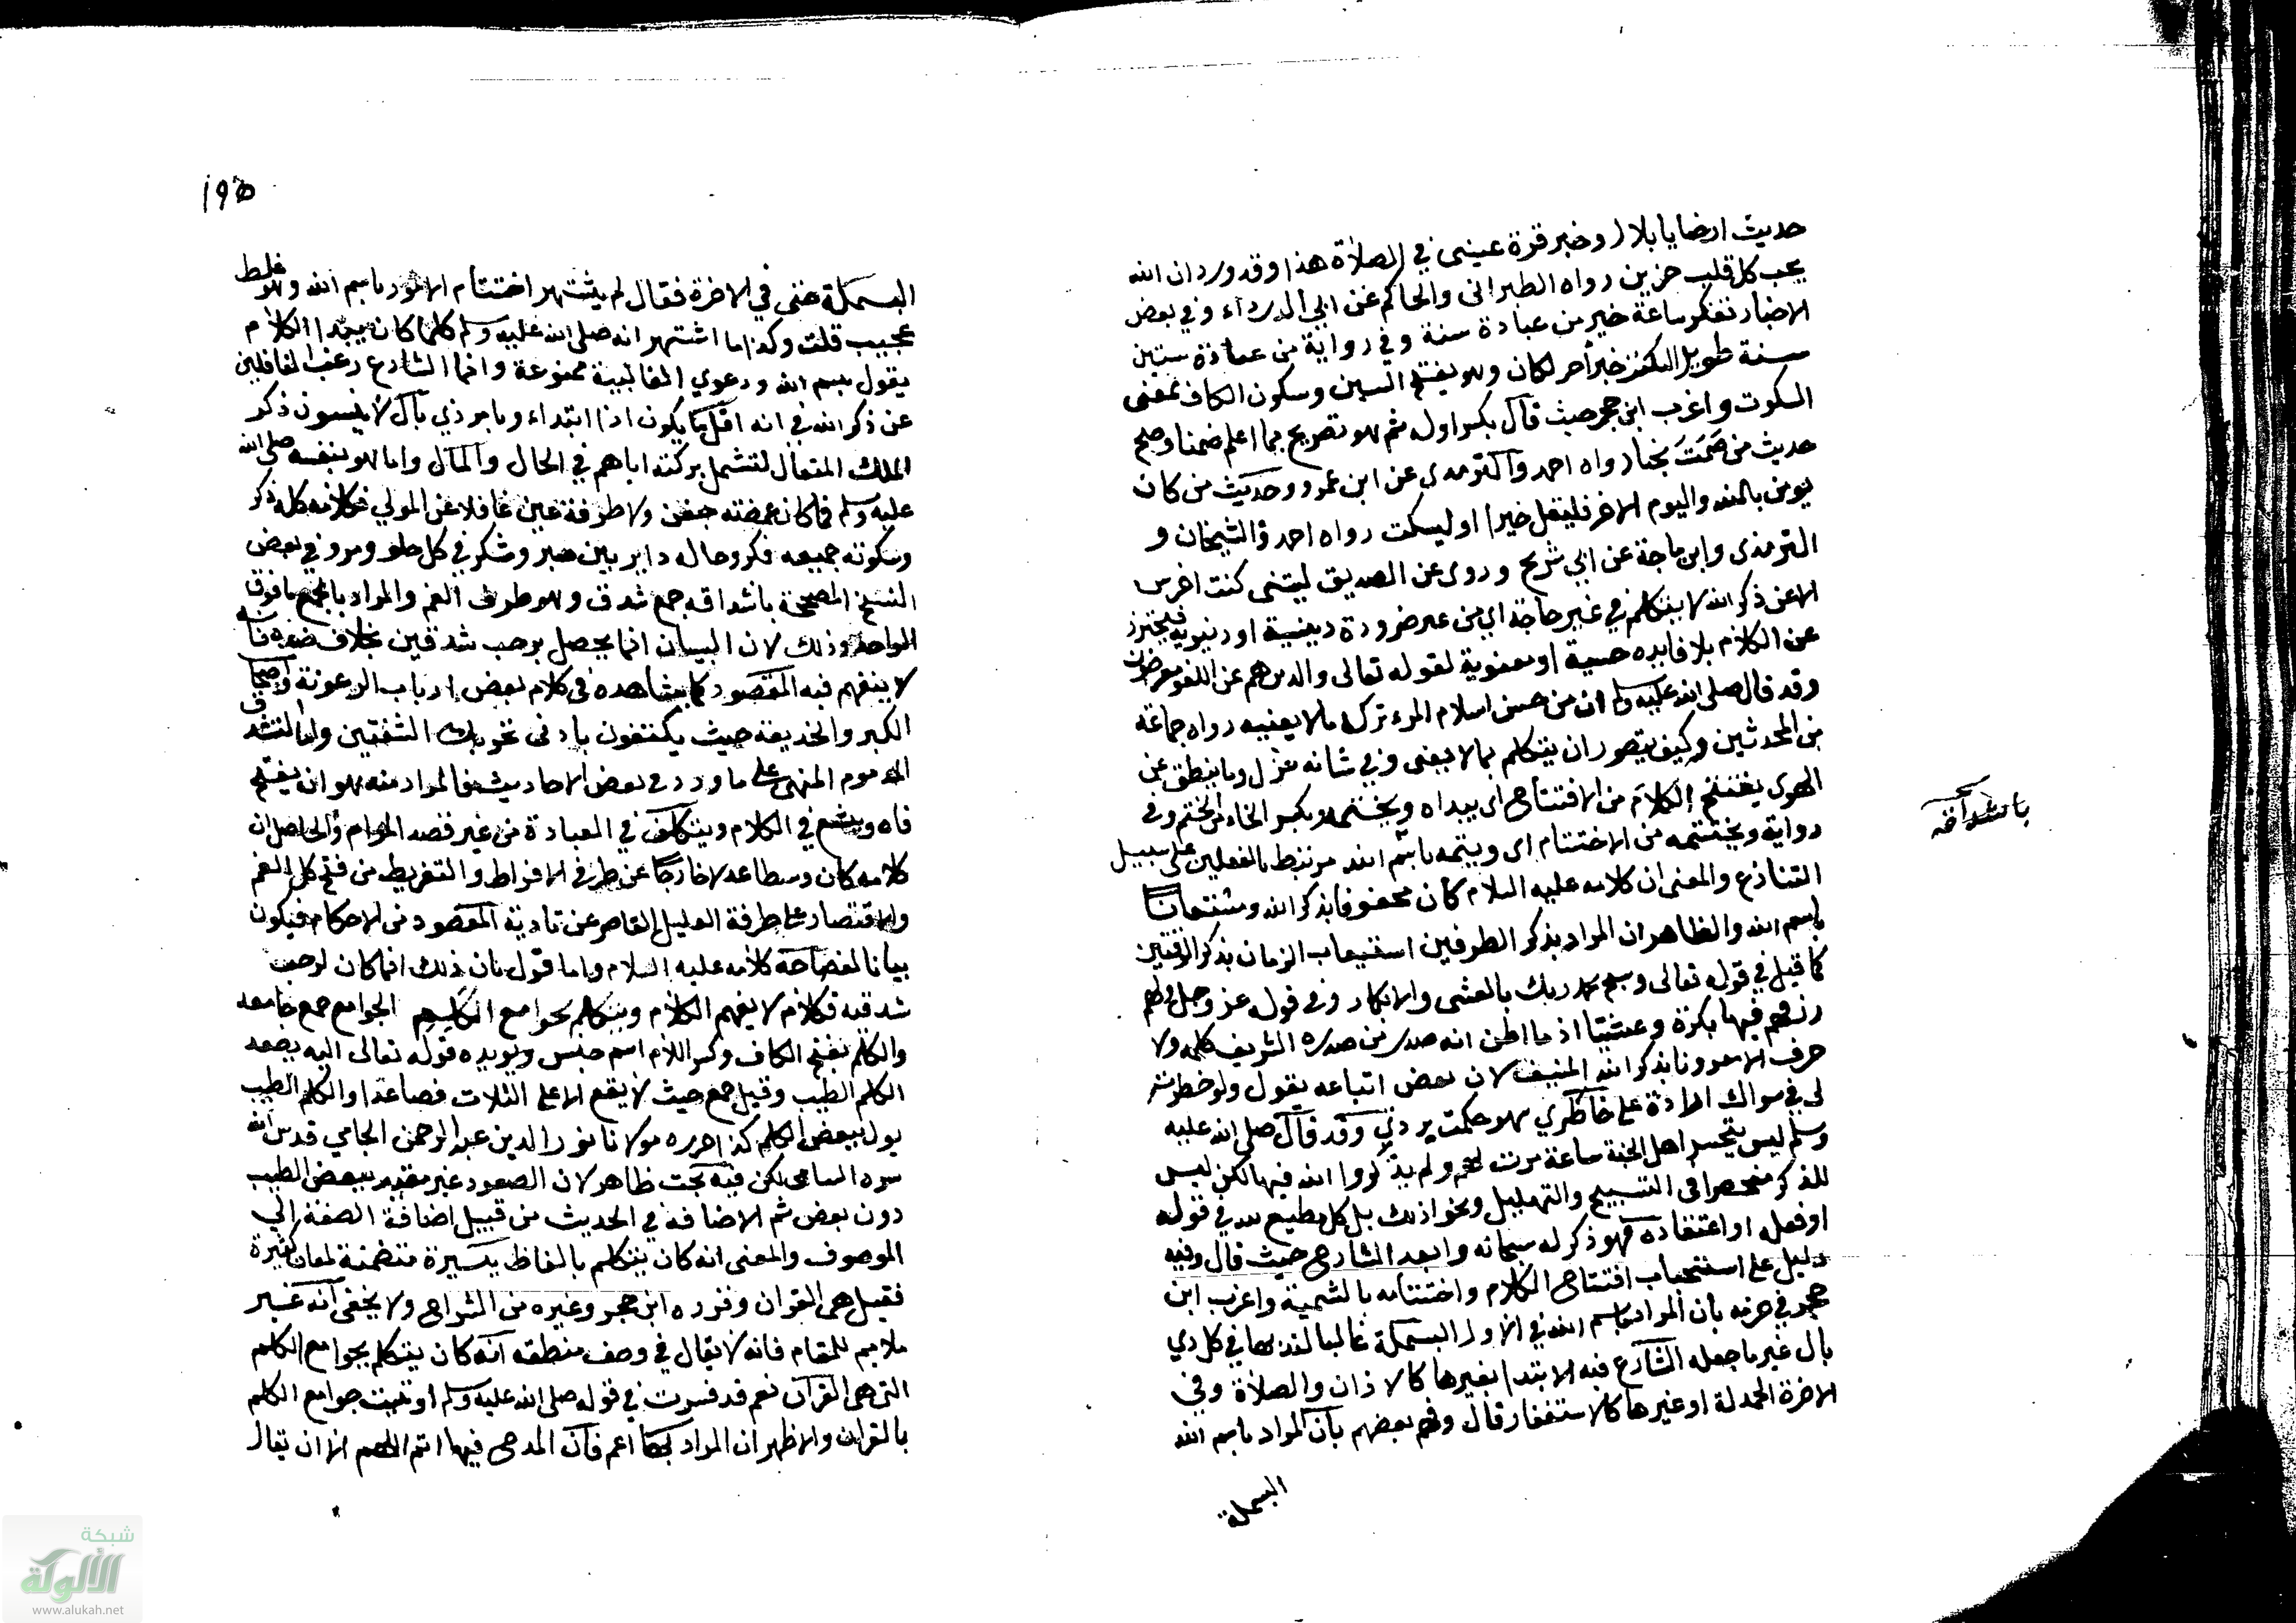 حديث ارضايا بلال وخبر قرة عيني في الصلاة هذا وقد ورد ان الله
يحب كل قلب حزين رواه الطبراني والحاكم عن ابي الدرداء وفي بعض
الاخبار تفكر ساعة خير من عبادة سنة وفي رواية من عبادة ستين
سنة طويل السكت خبر أخر لكان وهو بفتح السين وسكون الكاف بمعنى
السكوت واغرب ابن حجر حيث قال بكسر اوله ثم هو تصريح بما اعلم ضمنا وصح
حديث من صَمَتَ نجا رواه احمد والترمذي عن ابن عمرو وحديث من كان
يومن بالله واليوم الاخر فليقل خيرا او ليسكت رواه احمد والشيخان و
الترمذي وابن ماجة عن ابي شريح وروى عن الصديق ليتني كنت اخرس
الا عن ذكر الله لا يتكلم في غير حاجة اي من غير ضرورة دينية او دنيوية فيحترز
عن الكلام بلا فايده حسية او معنوية لقوله تعالى والذين هم عن اللغو معرضون
وقد قال صلى الله عليه وسلم ان من حسن اسلام المرء تركه ما لا يعنيه رواه جماعة
من المحدثين وكيف يتصور ان يتكلم بما لا يعني وفي شانه نزل وما ينطق عن
الهوى يفتتح الكلام من الافتتاح اى يبداه ويختمه بكسر التاء من الختم وفي
رواية ويختتمه من الاختتام اى ويتمه باسم الله مرتبط بالفعلين على سبيل
التنازع والمعنى ان كلامه عليه السلام كان محفوفا بذكر الله ومستعانا
باسم الله والظاهر ان المراد بذكر الطرفين استيعاب الزمان بذكر الوقتين
كما قيل في قوله تعالى وسبح بحمد ربك بالعشى والابكار وفي قوله عز وجل ولهم
رزقهم فيها بكرة وعشيا اذ ما اظن انه صدر من صدره الشريف كلمة ولا
حرف الا مقرونا بذكر الله المنيف لان بعض اتباعه يقول ولو خطرت
لى في سواك ارادة على خاطري سهوا حكمت بردتي وقد قال صلى الله عليه
وسلم ليس يتحسر اهل الجنة الا على ساعة مرت بهم ولم يذكروا الله فيها لكن ليس
للذكر منحصرا في التسبيح والتهليل ونحو ذلك بل كل مطيع لله في قوله
او فعله او اعتقاده فهو ذكر له سبحانه وابعد الشارح حيث قال وفيه
دليل على استحباب افتتاح الكلام واختتامه بالتسمية واغرب ابن
حجر في جزمه بأن المراد باسم الله في الأول البسملة غالبا لندبها في كل ذي
بال غير ما جعله الشارع فيه الابتدا بغيرها كالاذان والصلاة وفي
الاخرة الحمدلة او غيرها كالاستغفار قال وفهم بعضهم بأن المراد باسم الله
البسملة
باشداقه
١٩٥
البسملة حتى في الاخرة فقال لم يشتهر اختتام الامور باسم الله وهو غلط
عجيب قلت وكذا ما اشتهر انه صلى الله عليه وسلم كلما كان يبتدا الكلام
يقول بسم الله ودعوى الغالبية ممنوعة وانما الشارع رغب الغافلين
عن ذكر الله في انه اقل ما يكون اذا ابتداء وبامر ذي بال لا ينسون ذكر
الملك المتعال لتشمل بركته اياهم في الحال والمال واما هو بنفسه صلى الله
عليه وسلم فما كان غمضته جفن ولا طرفة عين غافلا عن المولي فكلامه كله ذكر
وسكوته جميعه فكر وحاله داير بين صبر وشكر في كل حلو ومر وفي بعض
النسخ المصححة باشداقه جمع شدق وهو طرف الفم والمراد بالجمع ما فوق
الواحد وذلك لان البيان انما يحصل برحب شدقين بخلاف ضده فانه
لا ينفهم فيه المقصود كما يشاهده في كلام بعض ارباب الرعونة واصحاب
الكبر والخديعة حيث يكتفون بادنى تحريك الشفتين واما التشدق
المذموم المنهى على ما ورد في بعض الاحاديث فالمراد منه هو ان يفتح
فاه ويتسع في الكلام ويتكلف في العبادة من غير قصد المرام والحاصل ان
كلامه كان وسطا عدلا خارجا عن طرفي الافراط والتفريط من فتح كل الفم
والاقتصار على طرفة القليل القاصر عن تادية المقصود من الاحكام فيكون
بيانا لفصاحة كلامه عليه السلام واما قول بان ذلك انما كان لرحب
شدقيه فكلام لا يفهم الكلام ويتكلم بجوامع الكلم الجوامع جمع جامعه
والكلم بفتح الكاف وكسر اللام اسم جنس ويويده قوله تعالى اليه يصعد
الكلم الطيب وقيل جمع حيث لا يقع الا على الثلاث فصاعدا والكلم الطيب
يول ببعض الكلم كذا حرره مولانا نور الدين عبد الرحمن الجامي قدس الله
سره السامي لكن فيه بحث ظاهر لان الصعود غير مقيد ببعض الطيب
دون بعض ثم الاضافة في الحديث من قبيل اضافة الصفة إلي
الموصوف والمعنى انه كان يتكلم بالفاظ يسيرة متضمنة لمعان كثيرة
فقيل هي القران وقرره ابن حجر وغيره من الشراح ولا يخفى انه غير
ملايم للمقام فانه لا يقال في وصف منطقه انه كان يتكلم بجوامع الكلم
التي هي القرآن نعم قد فسرت في قوله صلى الله عليه وسلم اوتيت جوامع الكلم
بالقران والاظهر ان المراد بها اعم فان المدح فيها اتم اللهم الا ان يقال
شبكة
الألوكة
www.alukah.net